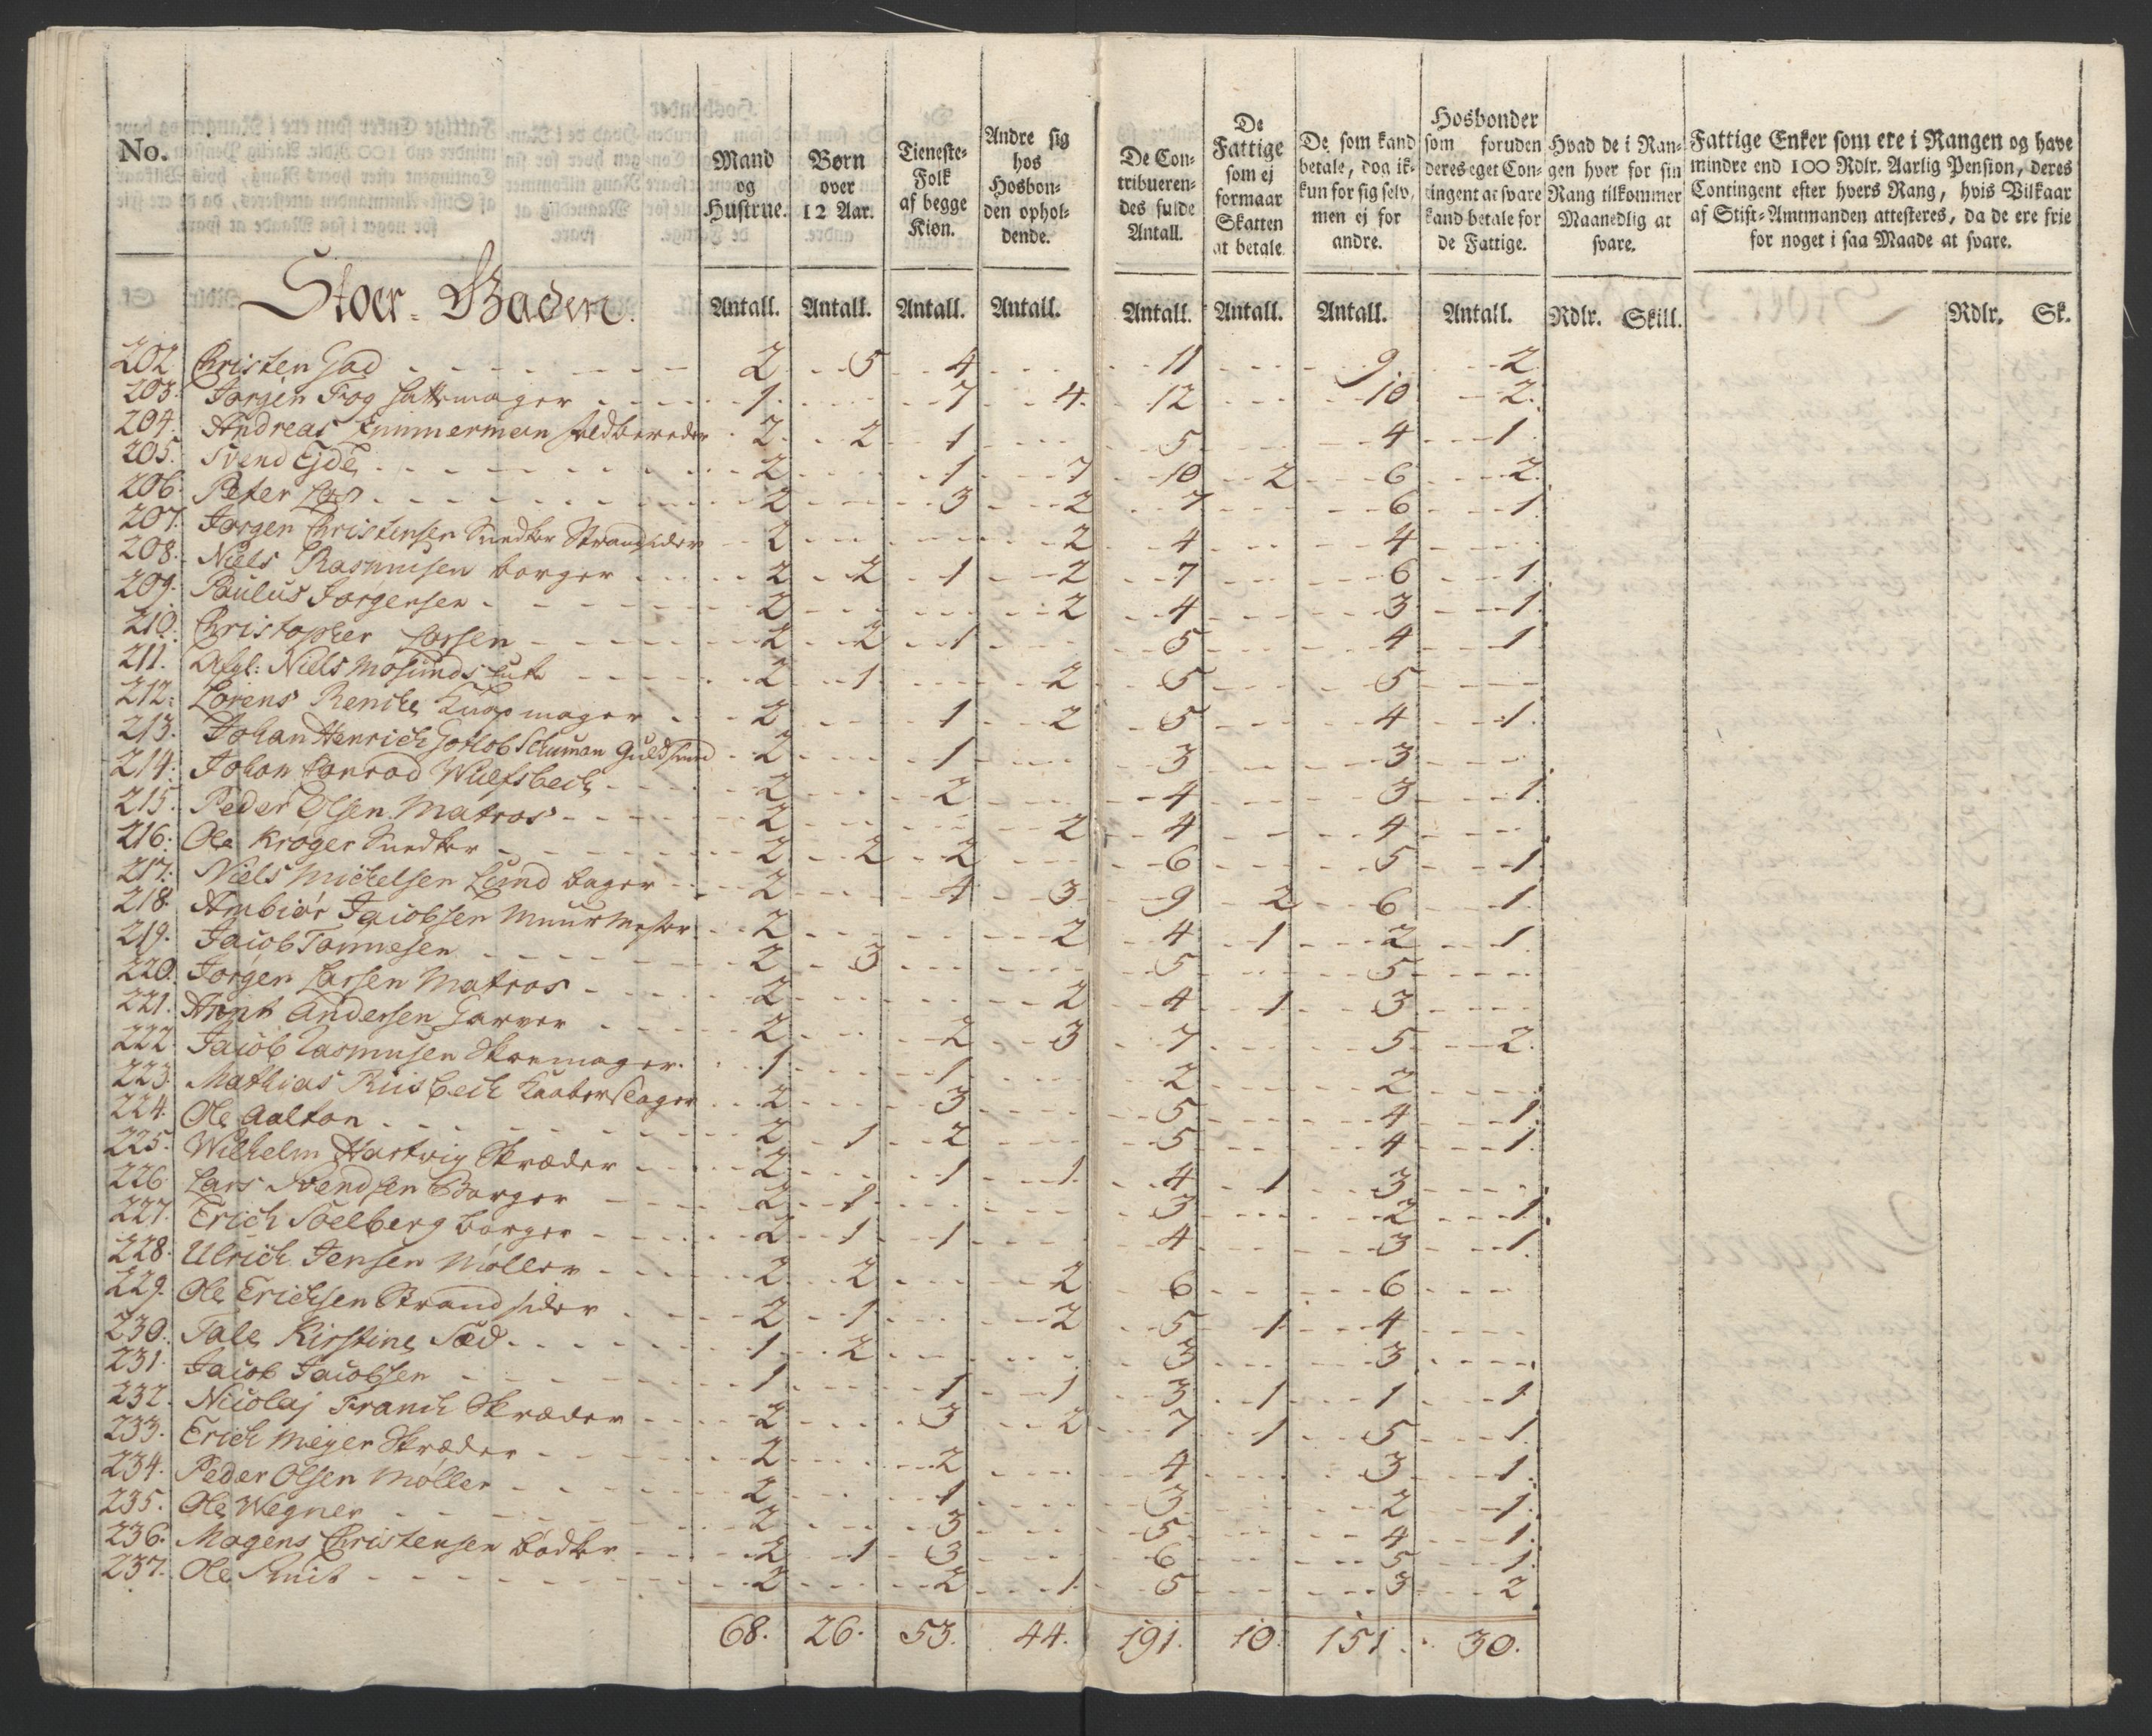 No.
Mand og Hustrue.
Børn over 12 Aar.
Tieneste-Folk af begge Kiøn.
Andre sig hos Hosbon-den ophol-dende.
De Con-tribueren-des fulde Antall.
De Fattige som ej formaar Skatten at betale
De som kand betale, dog ik-kun for sig selv, men ej for andre.
Hosbonder som foruden deres eget Con-tingent at svare kand betale for de Fattige.
Hvad de i Ran-gen hver for sin Rang tilkommer Maanedlig at svare.
Fattige Enker som ere i Rangen og have mindre end 100 Rdlr. Aarlig Pension, deres Contingent efter hvers Rang, hvis Vilkaar af Stift-Amtmanden attesteres, da de ere frie for noget i saa Maade at svare.
Stoer-Baden.
Antall. Antall. Antall. Antall. Antall. Antall. Antall. Antall. Rdlr. Skill. Rdlr. Sk.
202 Christen Gad 2 5 4 11 9 2
203. Jørgen Fog Hattemager 1 7 4 12 10 2
204. Andreas Zimmerman feldbereder 2 2 1 5 4 1
205. Svend Ejde 2 1 7 10 2 6 2
206. Peter 2 3 2 7 6 1
207. Jørgen Christensen Snedker Strandsider 2 2 4 4
208. Niels Rasmusen borger 2 2 1 2 7 6 1
209. Paulus Jørgensen 2 2 4 3 1
210. Christopher Larsen 2 2 1 5 4 1
211. Afgl: Niels 2 1 2 5 5
212. Lorens Renche Knapmager 2 1 2 5 4 1
213. Johan Henrich Gotlob Schuman Guldsmed 2 1 3 3
214. Johan Conrad Wulfsbech 2 2 4 3 1
215. Peder Olsen Matros 2 2 4 4
216. Ole Krøger Snedker 2 2 2 6 5 1
217. Niels Michelsen Lund bager 2 4 3 9 2 6 1
218. Ambiør Jacobsen Muurmester 2 2 4 1 2 1
219. Jacob Tønnesen 2 3 5 5
220. Jørgen Larsen Matros 2 2 4 1 3
221. Arnt Andersen Garver 2 2 3 7 5 2
222. Jacob Rasmusen Skoemager 1 1 2 2
223. Mathias Riisbech Kaaberslager 2 3 5 4 1
224. Ole Aalton 2 1 2 5 4 1
225. Wilhelm Hartvig Skræder 2 1 1 4 1 3
226. Lars Svendsen Borger 2 1 3 2 1
227. Erich Soelberg borger 2 1 1 4 3 1
228. Ulrich Jensen Møller 2 2 2 6 6
229. Ole Erichsen Strandsider 2 1 2 5 1 4
230. Tale Kirstine Sæd 1 2 3 3
231. Jacob Jacobsen 1 1 1 3 1 1 1
232. Nicolaj Franch Skræder 2 3 2 7 1 5 1
233. Erich Meyer Skræder 2 2 4 3 1
234. Peder Olsen Møller 2 1 3 2 1
235. Ole Wegner 2 3 5 4 1
236. Mogens Christensen bødker 2 1 3 6 5 1
237. Ole Smit 2 2 1 5 3 2
68. 26. 53. 44. 191. 10. 151. 30.